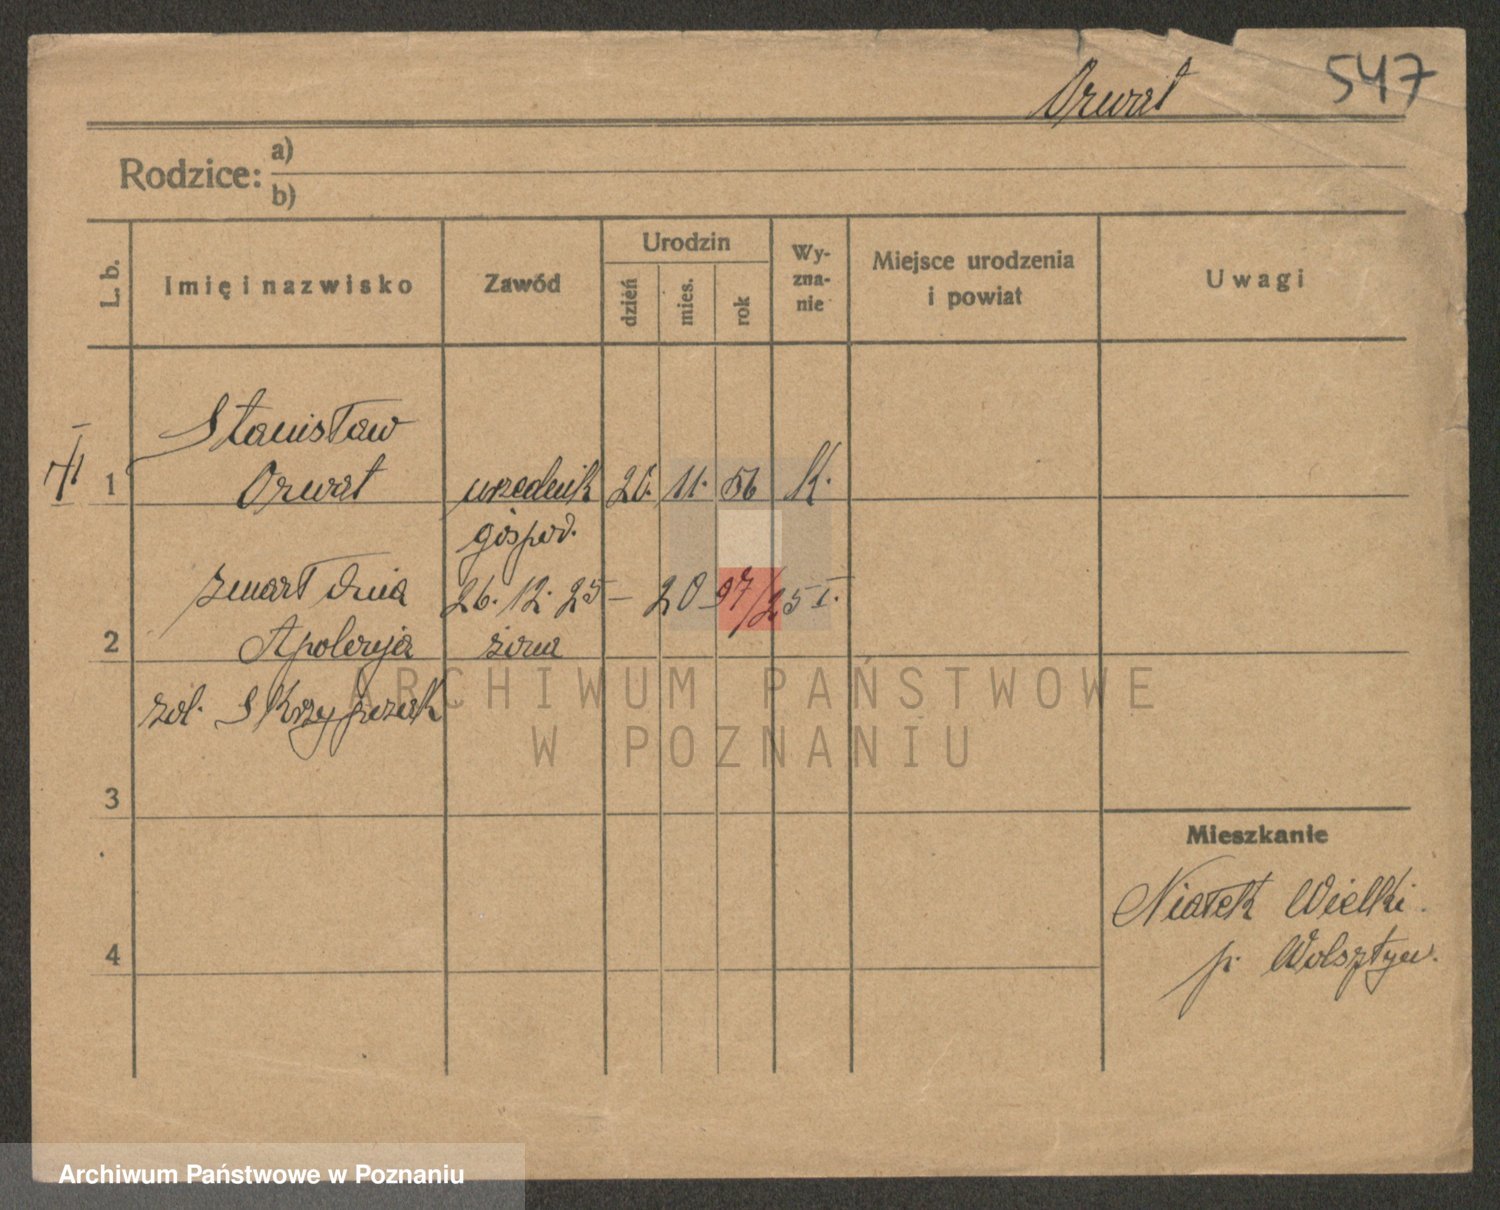 547
Orwat
Rodzice: a)
b)
L. b.
Imię i nazwisko
Zawód
Urodzin
dzień
mies.
rok
Wy-
zna-
nie
Miejsce urodzenia
i powiat
Uwagi
Stanisław
1 Orwat urzednik 20. 11. 56 K.
gospod.
zmarł dnia 26. 12. 25 – 20 97/25 I.
2 Apolonja żona
zol. Skrzypczak
ARCHIWUM PAŃSTWOWE
W POZNANIU
3
Mieszkanie
Niałek Wielki.
p. Wolsztyn.
4
Archiwum Państwowe w Poznaniu